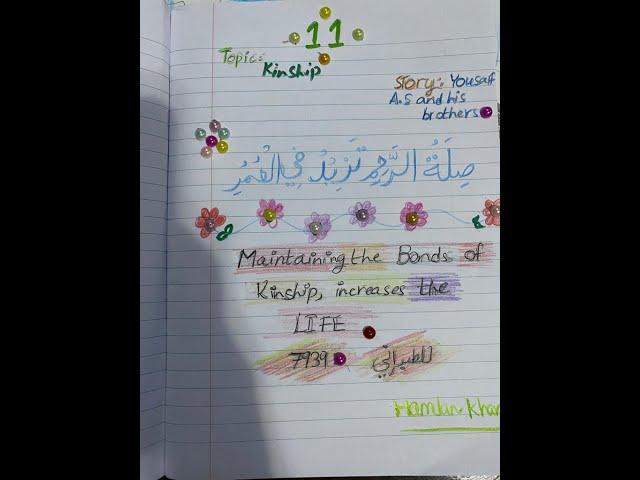 11
Topic:
Kinship
Story: Yousaf
A.S and his
brothers
صِلَةُ الرَّحِمِ تَزِيْدُ فِي الْعُمُرِ
Maintaining the Bonds of
Kinship, increases the
LIFE
7939 للطبراني